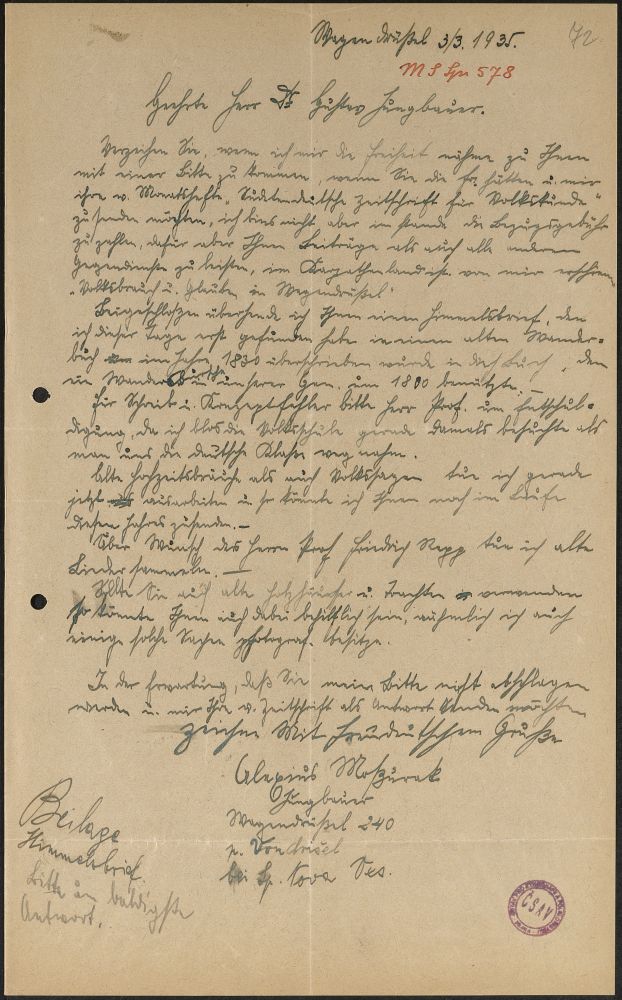 Wagendrüßel 3/3. 1935.
72
MS Spr 578
Geehrte Herr Dr Gustav Jungbauer.
Verzeihen Sie, wenn ich mir die Freiheit nähme zu Ihnen
mit einer Bitte zu kommen, wenn Sie die hätten u. mir
ihre w. Monatshefte „Sudetendeutsche Zeitschrift für Volkskunde"
zusenden möchten, ich bins nicht aber im stande die Bezugsgebühr
zu zahlen, dafür aber Ihnen Beiträge als auch alle anderen
Gegendienste zu leisten, im Karpathenland ist von mir erschienen
„Volksbrauch u. Glauben in Wagendrüßel"
Beigeschlossen übersende ich Ihnen einen Himmelsbrief, den
ich dieser Tage erst gefunden habe in einem alten Wander-
buch im Jahre 1830 überschrieben wurde in das Buch, dem
ein Wanderbursche unserer Gem. um 1800 benützte. –
Für Schreib u. Konzeptfehler bitte Herr Prof. um Entschul-
digung, da ich blos die Volksschule gerade damals besuchte als
man uns die deutsche Klasse weg nahm.
Alte Hochzeitsbräuche als auch Volkssagen tue ich gerade
jetzt ausarbeiten u. so könnte ich Ihnen noch im Laufe
diesen Jahres zusenden. –
Über Wunsch des Herrn Prof Friedrich Repp tue ich alte
Lieder sammeln. –
Sollte Sie auch alte Holzhäuser u. Trachten verwenden
so könnte Ihnen auch dabei behilflich sein, nähmlich ich auch
einige solche Sachen photograf. besitze.
In der Erwartung, daß Sie meine Bitte nicht abschlagen
werden u. mir Ihre w. Zeitschrift als Antwort senden möchten
zeichne Mit freudeutschem Gruße
Alexius Moßurak
Jungbauer
Wagendrüßel 240
p. Vondrišel
bei Sp. Nova Ves.
Beilage
Himmelsbrief.
Bitte um baldigste
Antwort.
ČSAV